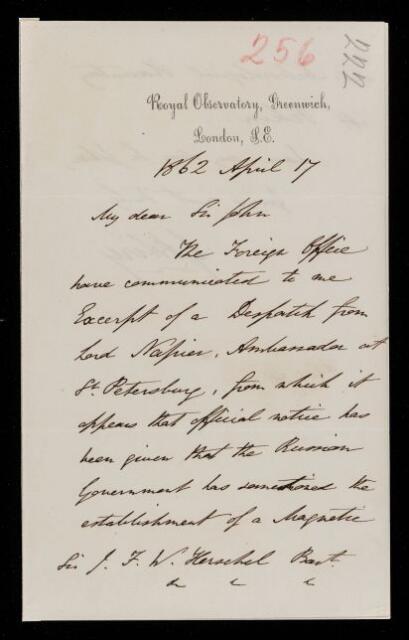 256
222
Royal Observatory, Greenwich,
London, S.E.
1862 April 17
My dear Sir John
The Foreign Office
have communicated to me
Excerpt of a Despatch from
Lord Napier, Ambassador at
St. Petersburg, from which it
appears that official notice has
been given that the Russian
Government has sanctioned the
establishment of a Magnetic
Sir J. F. W. Herschel Bart.